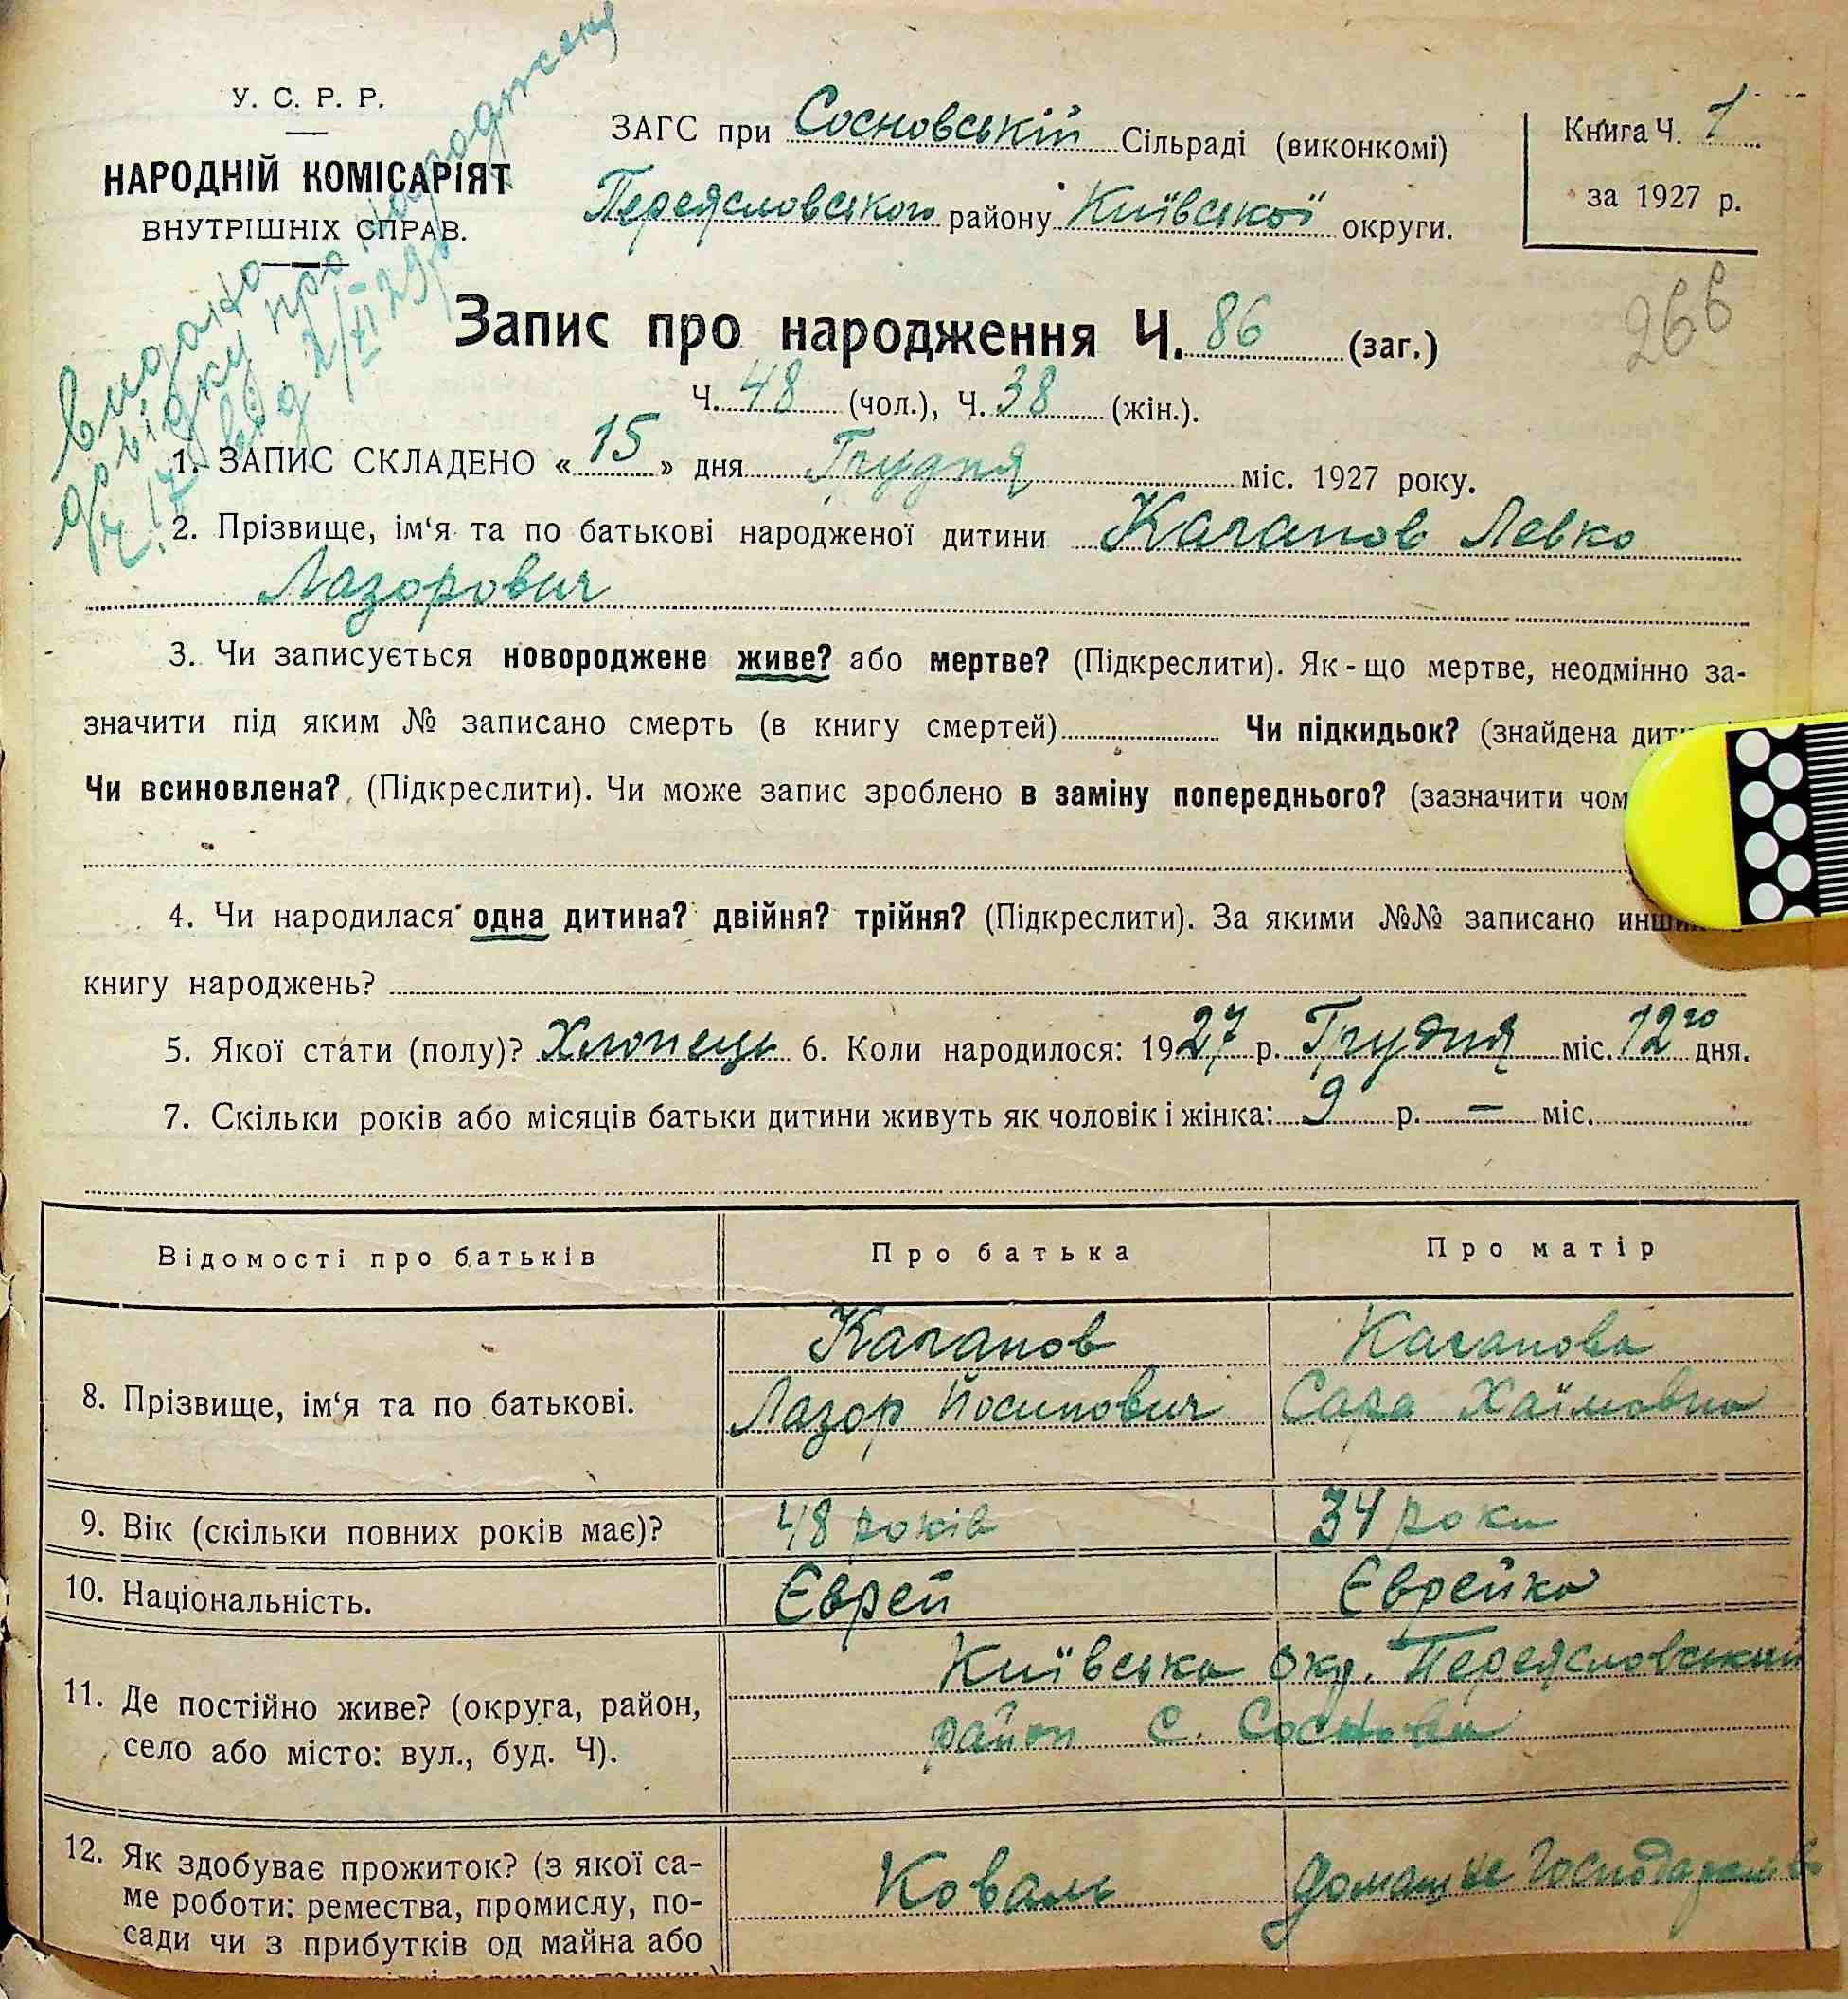 У. С. Р. Р.
НАРОДНІЙ КОМІСАРІЯТ
ВНУТРІШНІХ СПРАВ.
ЗАГС при Сосновській Сільраді (виконкомі)
Переясловського району Київської округи.
Книга Ч. 1
за 1927 р.
266
видано
довідку про народження
від 2/VI 29р
Запис про народження Ч. 86 (заг.)
Ч. 48 (чол.), Ч. 38 (жін.).
1. ЗАПИС СКЛАДЕНО « 15 » дня Грудня міс. 1927 року.
2. Прізвище, ім‘я та по батькові народженої дитини Каганов Левко
Лазорович
3. Чи записується новороджене живе? або мертве? (Підкреслити). Як-що мертве, неодмінно за-
значити під яким № записано смерть (в книгу смертей) Чи підкидьок? (знайдена
Чи всиновлена? (Підкреслити). Чи може запис зроблено в заміну попереднього? (зазначити
4. Чи народилася одна дитина? двійня? трійня? (Підкреслити). За якими №№ записано
книгу народжень?
5. Якої стати (полу)? Хлопець 6. Коли народилося: 1927 р. Грудня міс. 12го дня.
7. Скільки років або місяців батьки дитини живуть як чоловік і жінка: 9 р. — міс.
Відомості про батьків Про батька Про матір
8. Прізвище, ім‘я та по батькові. Каганов Каганова
Лазор Йосипович Сара Хаїмовна
9. Вік (скільки повних років має)? 48 років 34 роки
10. Національність. Єврей Єврейка
11. Де постійно живе? (округа, район, Київська окр. Переясловський
село або місто: вул., буд. Ч). район с. Соснова
12. Як здобуває прожиток? (з якої са- Коваль домашне господарство
ме роботи: ремества, промислу, по-
сади чи з прибутків од майна або